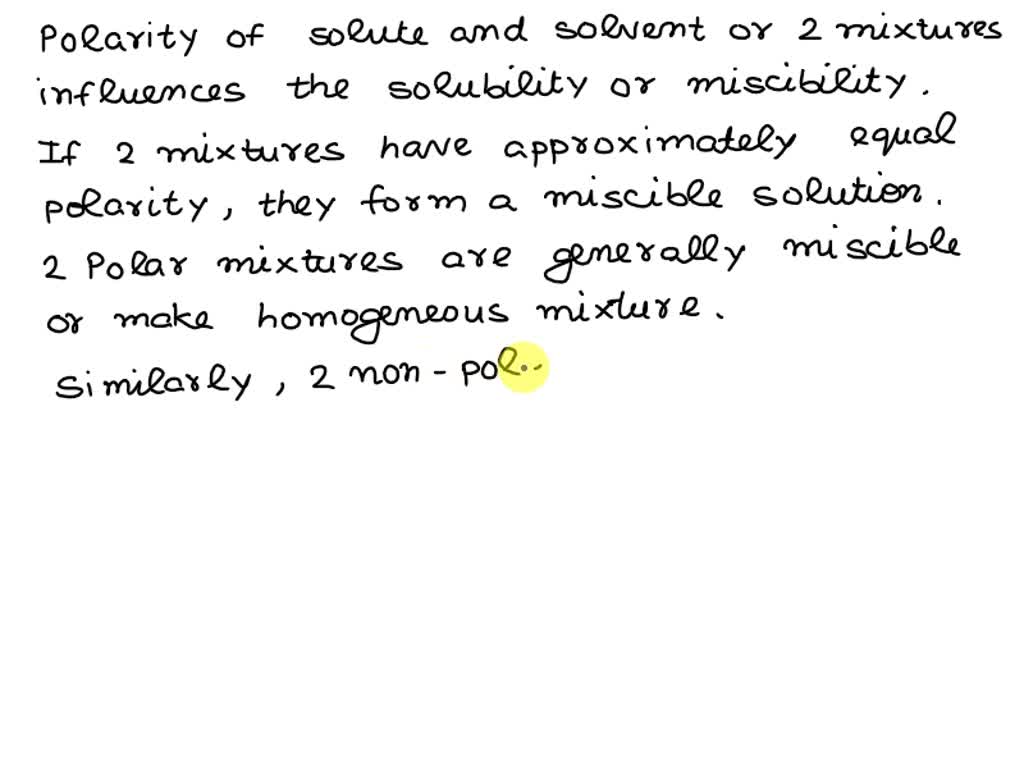 Polarity of solute and solvent or 2 mixtures
influences the solubility or miscibility.
If 2 mixtures have approximately equal
polarity, they form a miscible solution.
2 Polar mixtures are generally miscible
or make homogeneous mixture.
Similarly, 2 non-pol